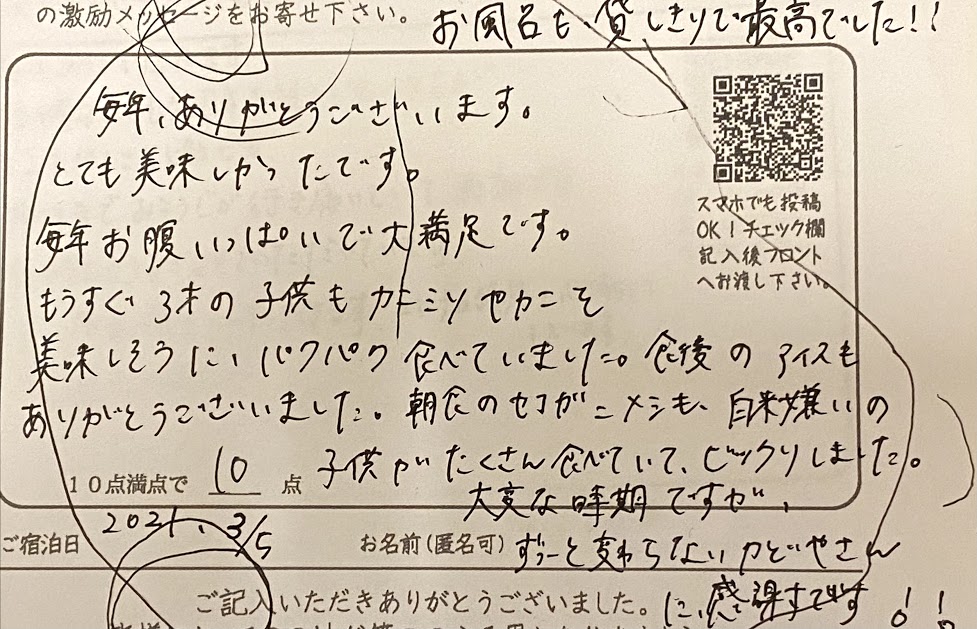 の激励メッセージをお寄せ下さい。
お風呂も、貸しきりで最高でした!!
毎年、ありがとうございます。
とても美味しかったです。
スマホでも投稿
OK!チェック欄
記入後フロント
へお渡し下さい。
毎年お腹いっぱいで大満足です。
もうすぐ3才の子供もカニミソやカニを
美味しそうにパクパク食べていました。食後のアイスも
ありがとうございました。朝食のセコガニメシも、白米嫌いの
子供がたくさん食べていて、ビックリしました。
10点満点で 10 点
大変な時期ですが、
ご宿泊日 2021.3/5
お名前(匿名可)
ずぅーと変わらないかどやさん
に、感謝です!!
ご記入いただきありがとうございました。